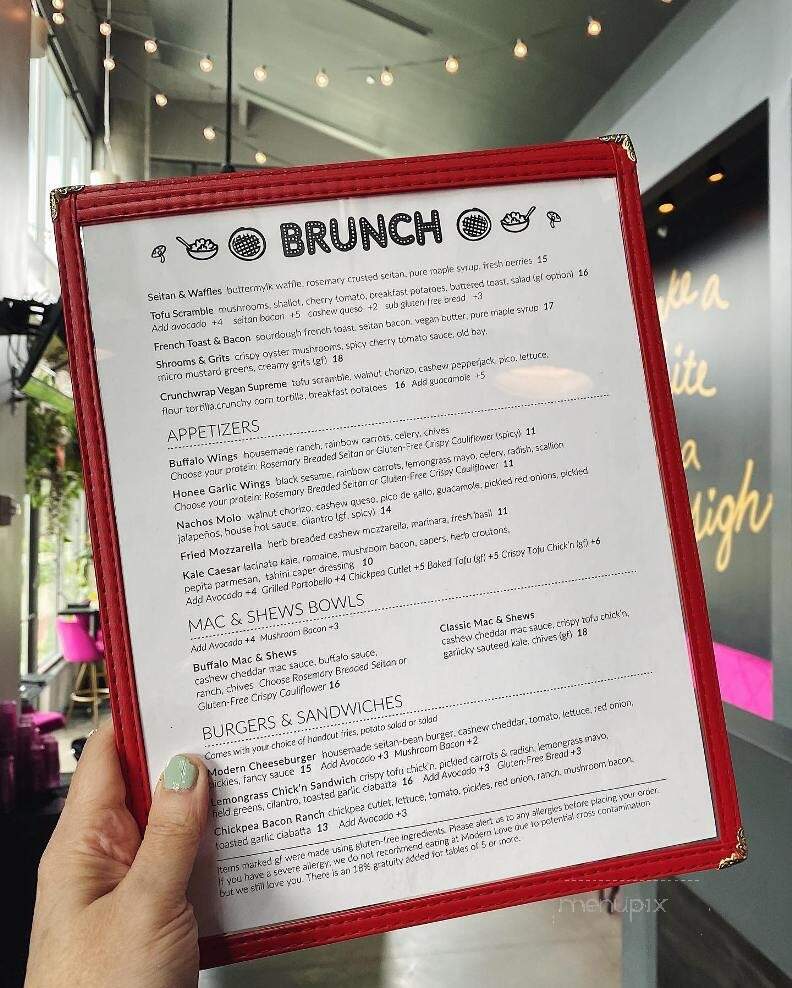 BRUNCH
Seitan & Waffles buttermylk waffle, rosemary crusted seitan, pure maple syrup, fresh berries 15
Tofu Scramble mushrooms, shallot, cherry tomato, breakfast potatoes, buttered toast, salad (gf option) 16
Add avocado +4 seitan bacon +5 cashew queso +2 sub gluten-free bread +3
French Toast & Bacon sourdough french toast, seitan bacon, vegan butter, pure maple syrup 17
Shrooms & Grits crispy oyster mushrooms, spicy cherry tomato sauce, old bay,
micro mustard greens, creamy grits (gf) 18
Crunchwrap Vegan Supreme tofu scramble, walnut chorizo, cashew pepperjack, pico, lettuce,
flour tortilla,crunchy corn tortilla, breakfast potatoes 16 Add guacamole +5
APPETIZERS
Buffalo Wings housemade ranch, rainbow carrots, celery, chives
Choose your protein: Rosemary Breaded Seitan or Gluten-Free Crispy Cauliflower (spicy) 11
Honee Garlic Wings black sesame, rainbow carrots, lemongrass mayo, celery, radish, scallion
Choose your protein: Rosemary Breaded Seitan or Gluten-Free Crispy Cauliflower 11
Nachos Molo walnut chorizo, cashew queso, pico de gallo, guacamole, pickled red onions, pickled
jalapeños, house hot sauce, cilantro (gf, spicy) 14
Fried Mozzarella herb breaded cashew mozzarella, marinara, fresh basil 11
Kale Caesar lacinato kale, romaine, mushroom bacon, capers, herb croutons,
pepita parmesan, tahini caper dressing 10
Add Avocado +4 Grilled Portobello +4 Chickpea Cutlet +5 Baked Tofu (gf) +5 Crispy Tofu Chick'n (gf) +6
MAC & SHEWS BOWLS
Add Avocado +4 Mushroom Bacon +3
Buffalo Mac & Shews
cashew cheddar mac sauce, buffalo sauce,
ranch, chives Choose Rosemary Breaded Seitan or
Gluten-Free Crispy Cauliflower 16
Classic Mac & Shews
cashew cheddar mac sauce, crispy tofu chick'n,
garlicky sauteed kale, chives (gf) 18
BURGERS & SANDWICHES
Comes with your choice of handcut fries, potato salad or salad
Modern Cheeseburger housemade seitan-bean burger, cashew cheddar, tomato, lettuce, red onion,
pickles, fancy sauce 15 Add Avocado +3 Mushroom Bacon +2
Lemongrass Chick'n Sandwich crispy tofu chick'n, pickled carrots & radish, lemongrass mayo,
field greens, cilantro, toasted garlic ciabatta 16 Add Avocado +3 Gluten-Free Bread +3
Chickpea Bacon Ranch chickpea cutlet, lettuce, tomato, pickles, red onion, ranch, mushroom bacon,
toasted garlic ciabatta 13 Add Avocado +3
Items marked gf were made using gluten-free ingredients. Please alert us to any allergies before placing your order.
If you have a severe allergy, we do not recommend eating at Modern Love due to potential cross contamination
but we still love you. There is an 18% gratuity added for tables of 5 or more.
a
a
menupix